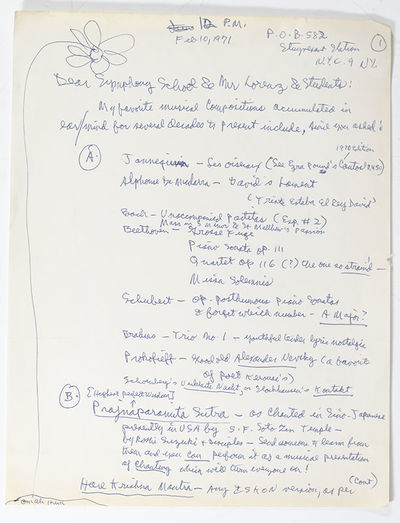 10 P.M.
Feb 10, 1971
P.O.B. 582
Stuyvesant Station
N.Y.C. 9 N.Y.
1
Dear Symphony School & Mr Lorenz & Students:
My favorite musical Compositions accumulated in
ear/mind for several decades to present include, since you asked:
1970 edition
A. Jannequin — Les Oiseaux (See Ezra Pound's Cantos p. 450)
Alphonse de Mudarra — David's Lament
("Triste Estaba El Rey David")
Bach — Unaccompanied Partitas (Esp. # 2)
Mass in B Minor & St Matthew's Passion
Beethoven — Grosse Fuge
Piano Sonata op. 111
Quartet Op 116 (?) the one so
Missa Solemnis
Schubert — Op. posthumous piano Sonatas
I forget which number — A Major?
Brahms — Trio No. 1 — youthful tender lyric nostalgic
Prokofieff — Alexander Nevsky (a favorite
of poet Kerouac's)
Schonberg's Verklarte Nacht, or Stockhausen's Kontakt
B. [Highest perfect wisdom]
Prajnaparamita Sutra — as Chanted in Sino-Japanese
presently in USA by S.F. Soto Zen Temple —
by Roshi Suzuki & Disciples — Send someone to learn from
them and you can perform it as a musical presentation
of Chanting which will turn everyone on!
(Cont)
Hare Krishna Mantra — Any ISKON version, as per